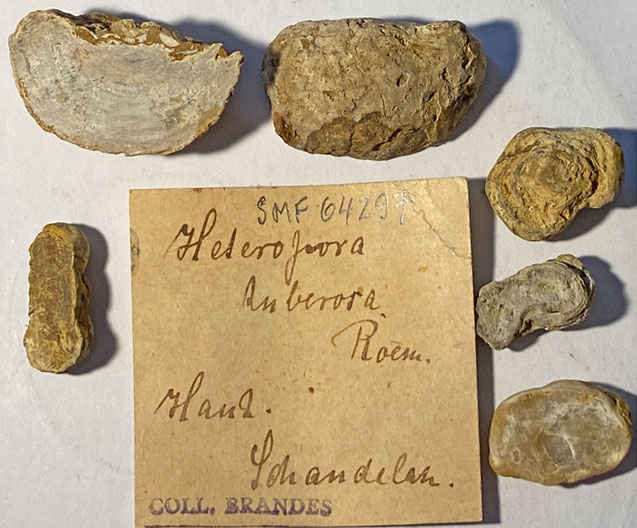 SMF 64297
Heteropora
tuberosa
Roem.
Haut.
Schandelah.
COLL. BRANDES